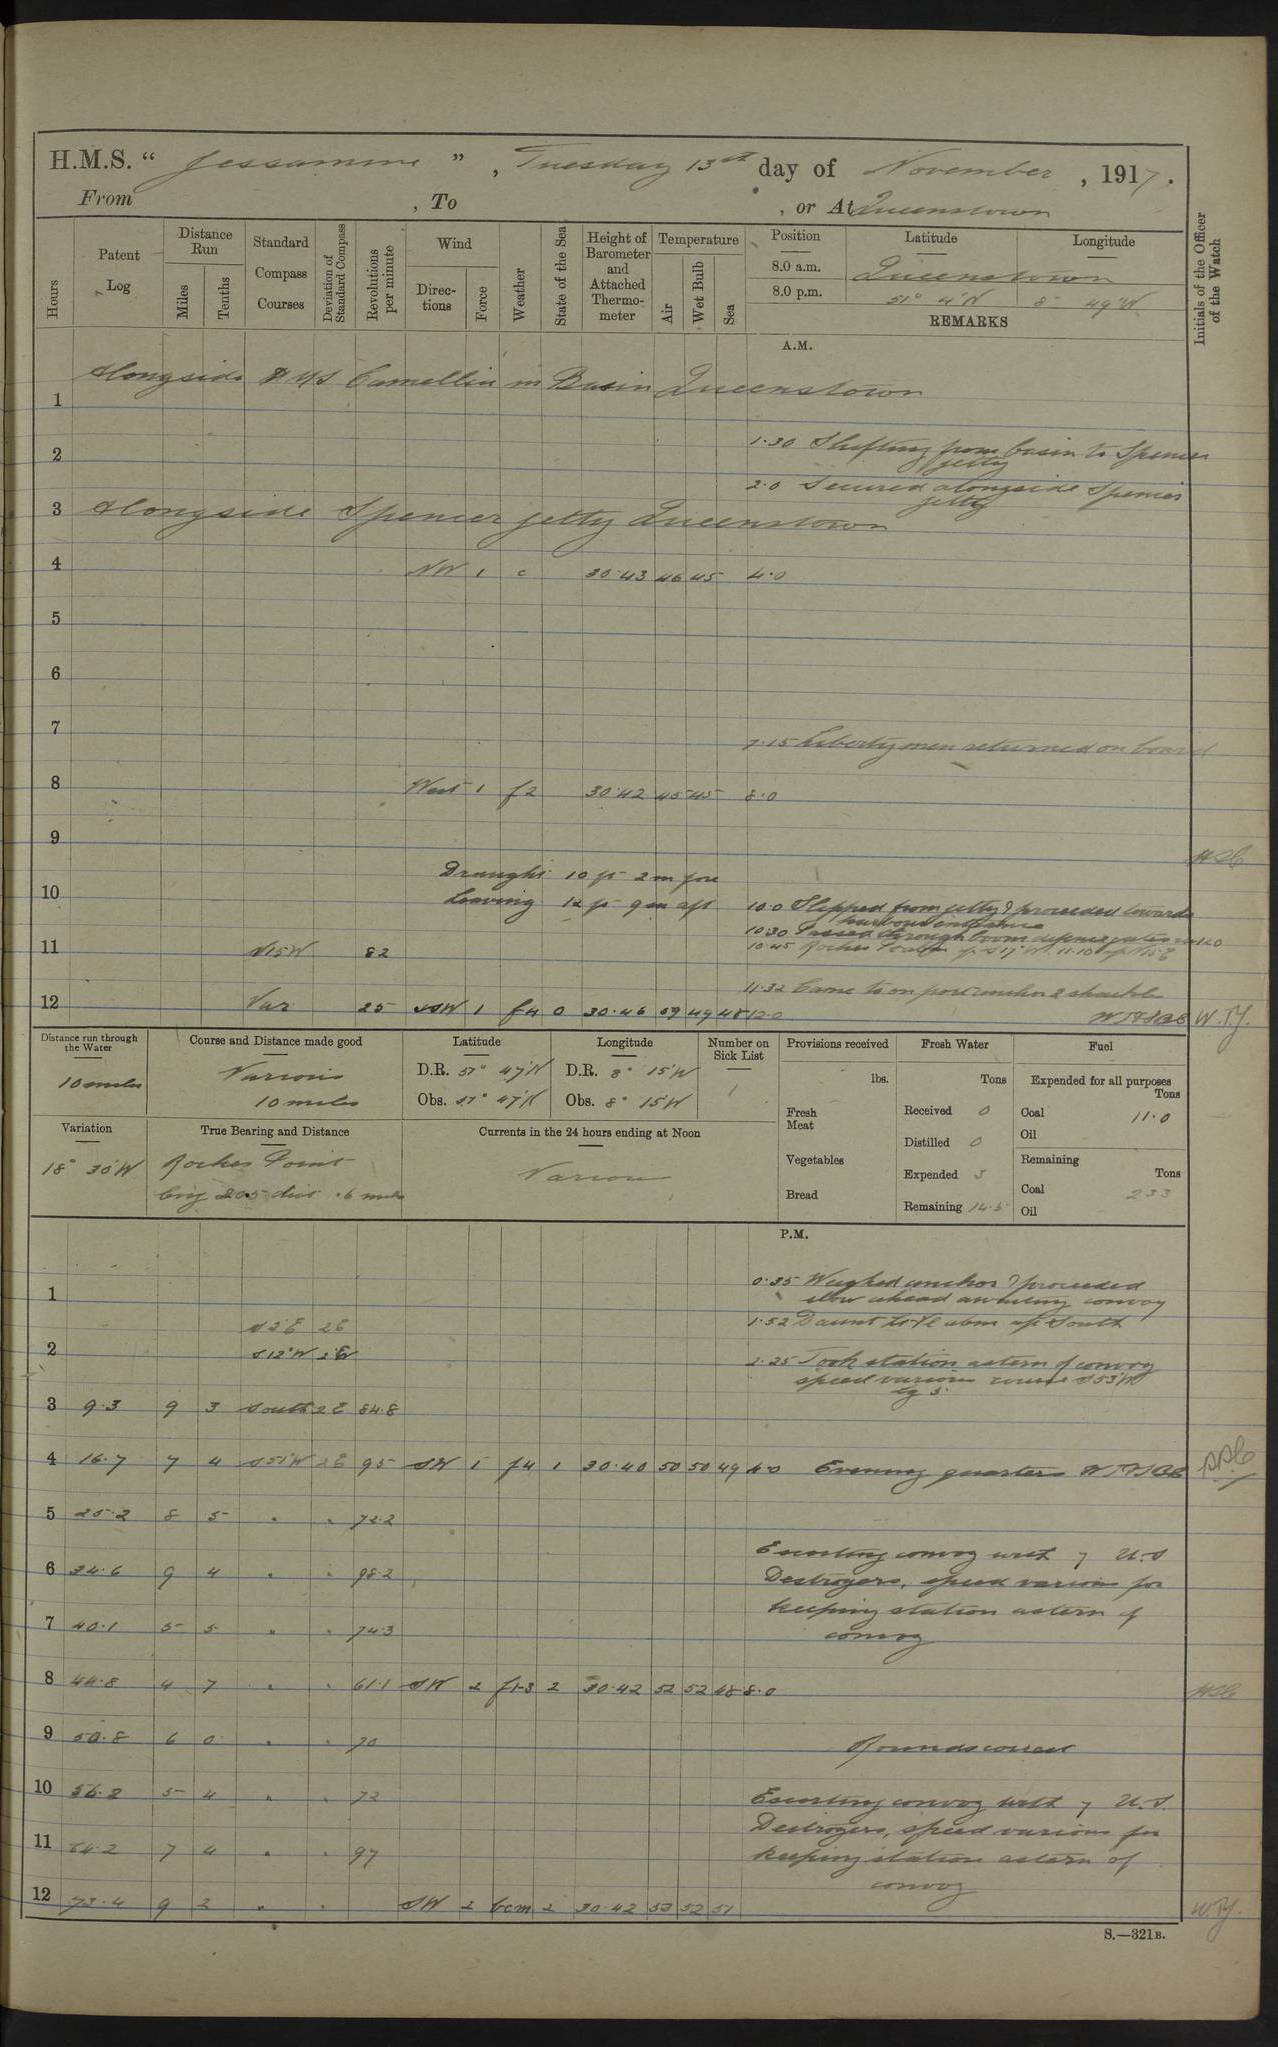 H.M.S. " Jessamine ", Tuesday 13th day of November, 1917.
From , To , or At Queenstown
Hours
Patent Log
Distance Run
Miles
Tenths
Standard Compass Courses
Deviation of Standard Compass
Revolutions per minute
Wind
Directions
Force
Weather
State of the Sea
Height of Barometer and Attached Thermometer
Temperature
Air
Wet Bulb
Sea
Position Latitude Longitude
8.0 a.m. Queenstown
8.0 p.m. 51° 4'N 8° 49'W
REMARKS
Initials of the Officer of the Watch
A.M.
Alongside HMS Camellia in Basin Queenstown
1
1.30 Shifting from basin to Spencer
jetty
2
2.0 Secured alongside Spencer
jetty
3 Alongside Spencer jetty Queenstown
4 NW 1 c 30.43 46 45 4.0
5
6
7
7.15 Liberty men returned on board
8 West 1 f2 30.42 45 45 8.0
9
Draught 10 ft 2 in fore
10 Leaving 12 ft 9 in aft 10.0 Slipped from jetty & proceeded towards
harbour entrance
10.30 Passed through boom defence gates
11 N15W 82 10.45 Roches Point
11.32 Came to on port anchor 2 shackles
12 Var 25 SSW 1 f4 0 30.46 59 49 48 12.0 W.T.Y.
Distance run through the Water
10 miles
Course and Distance made good
Various
10 miles
Latitude
D.R. 51° 47'N
Obs. 51° 47'N
Longitude
D.R. 8° 15'W
Obs. 8° 15'W
Number on Sick List
1
Variation
18° 30'W
True Bearing and Distance
Roches Point
brg 205 dist .6 miles
Currents in the 24 hours ending at Noon
Various
Provisions received
lbs.
Fresh Meat
Vegetables
Bread
Fresh Water
Tons
Received 0
Distilled 0
Expended 5
Remaining 145
Fuel
Expended for all purposes
Tons
Coal 11.0
Oil
Remaining
Tons
Coal 233
Oil
P.M.
0.35 Weighed anchor & proceeded
1 slow ahead awaiting convoy
S2E 2E 1.52 Daunt Lt Vl abm
2 S12°W 2E 2.25 Took station astern of convoy
speed various course S53W
3 9.3 9 3 South 2E 84.8
4 16.7 7 4 S51W 2E 95 SW 1 f4 1 30.40 50 50 49 4.0 Evening quarters
5 25.2 8 5 " " 72.2
Escorting convoy with 7 U.S
6 34.6 9 4 " " 98.2 Destroyers, speed various for
keeping station astern of
7 40.1 5 5 " " 74.3 convoy
8 44.8 4 7 " " 61.1 SW 2 f1-3 2 30.42 52 52 48 8.0
9 50.8 6 0 " " 70 Rounds correct
10 56.2 5 4 " " 72 Escorting convoy with 7 U.S.
Destroyers, speed various for
11 64.2 7 4 " " 97 keeping station astern of
convoy
12 73.4 9 2 " " SW 2 bcm 2 30.42 53 52 51 W.T.Y.
S.—321B.